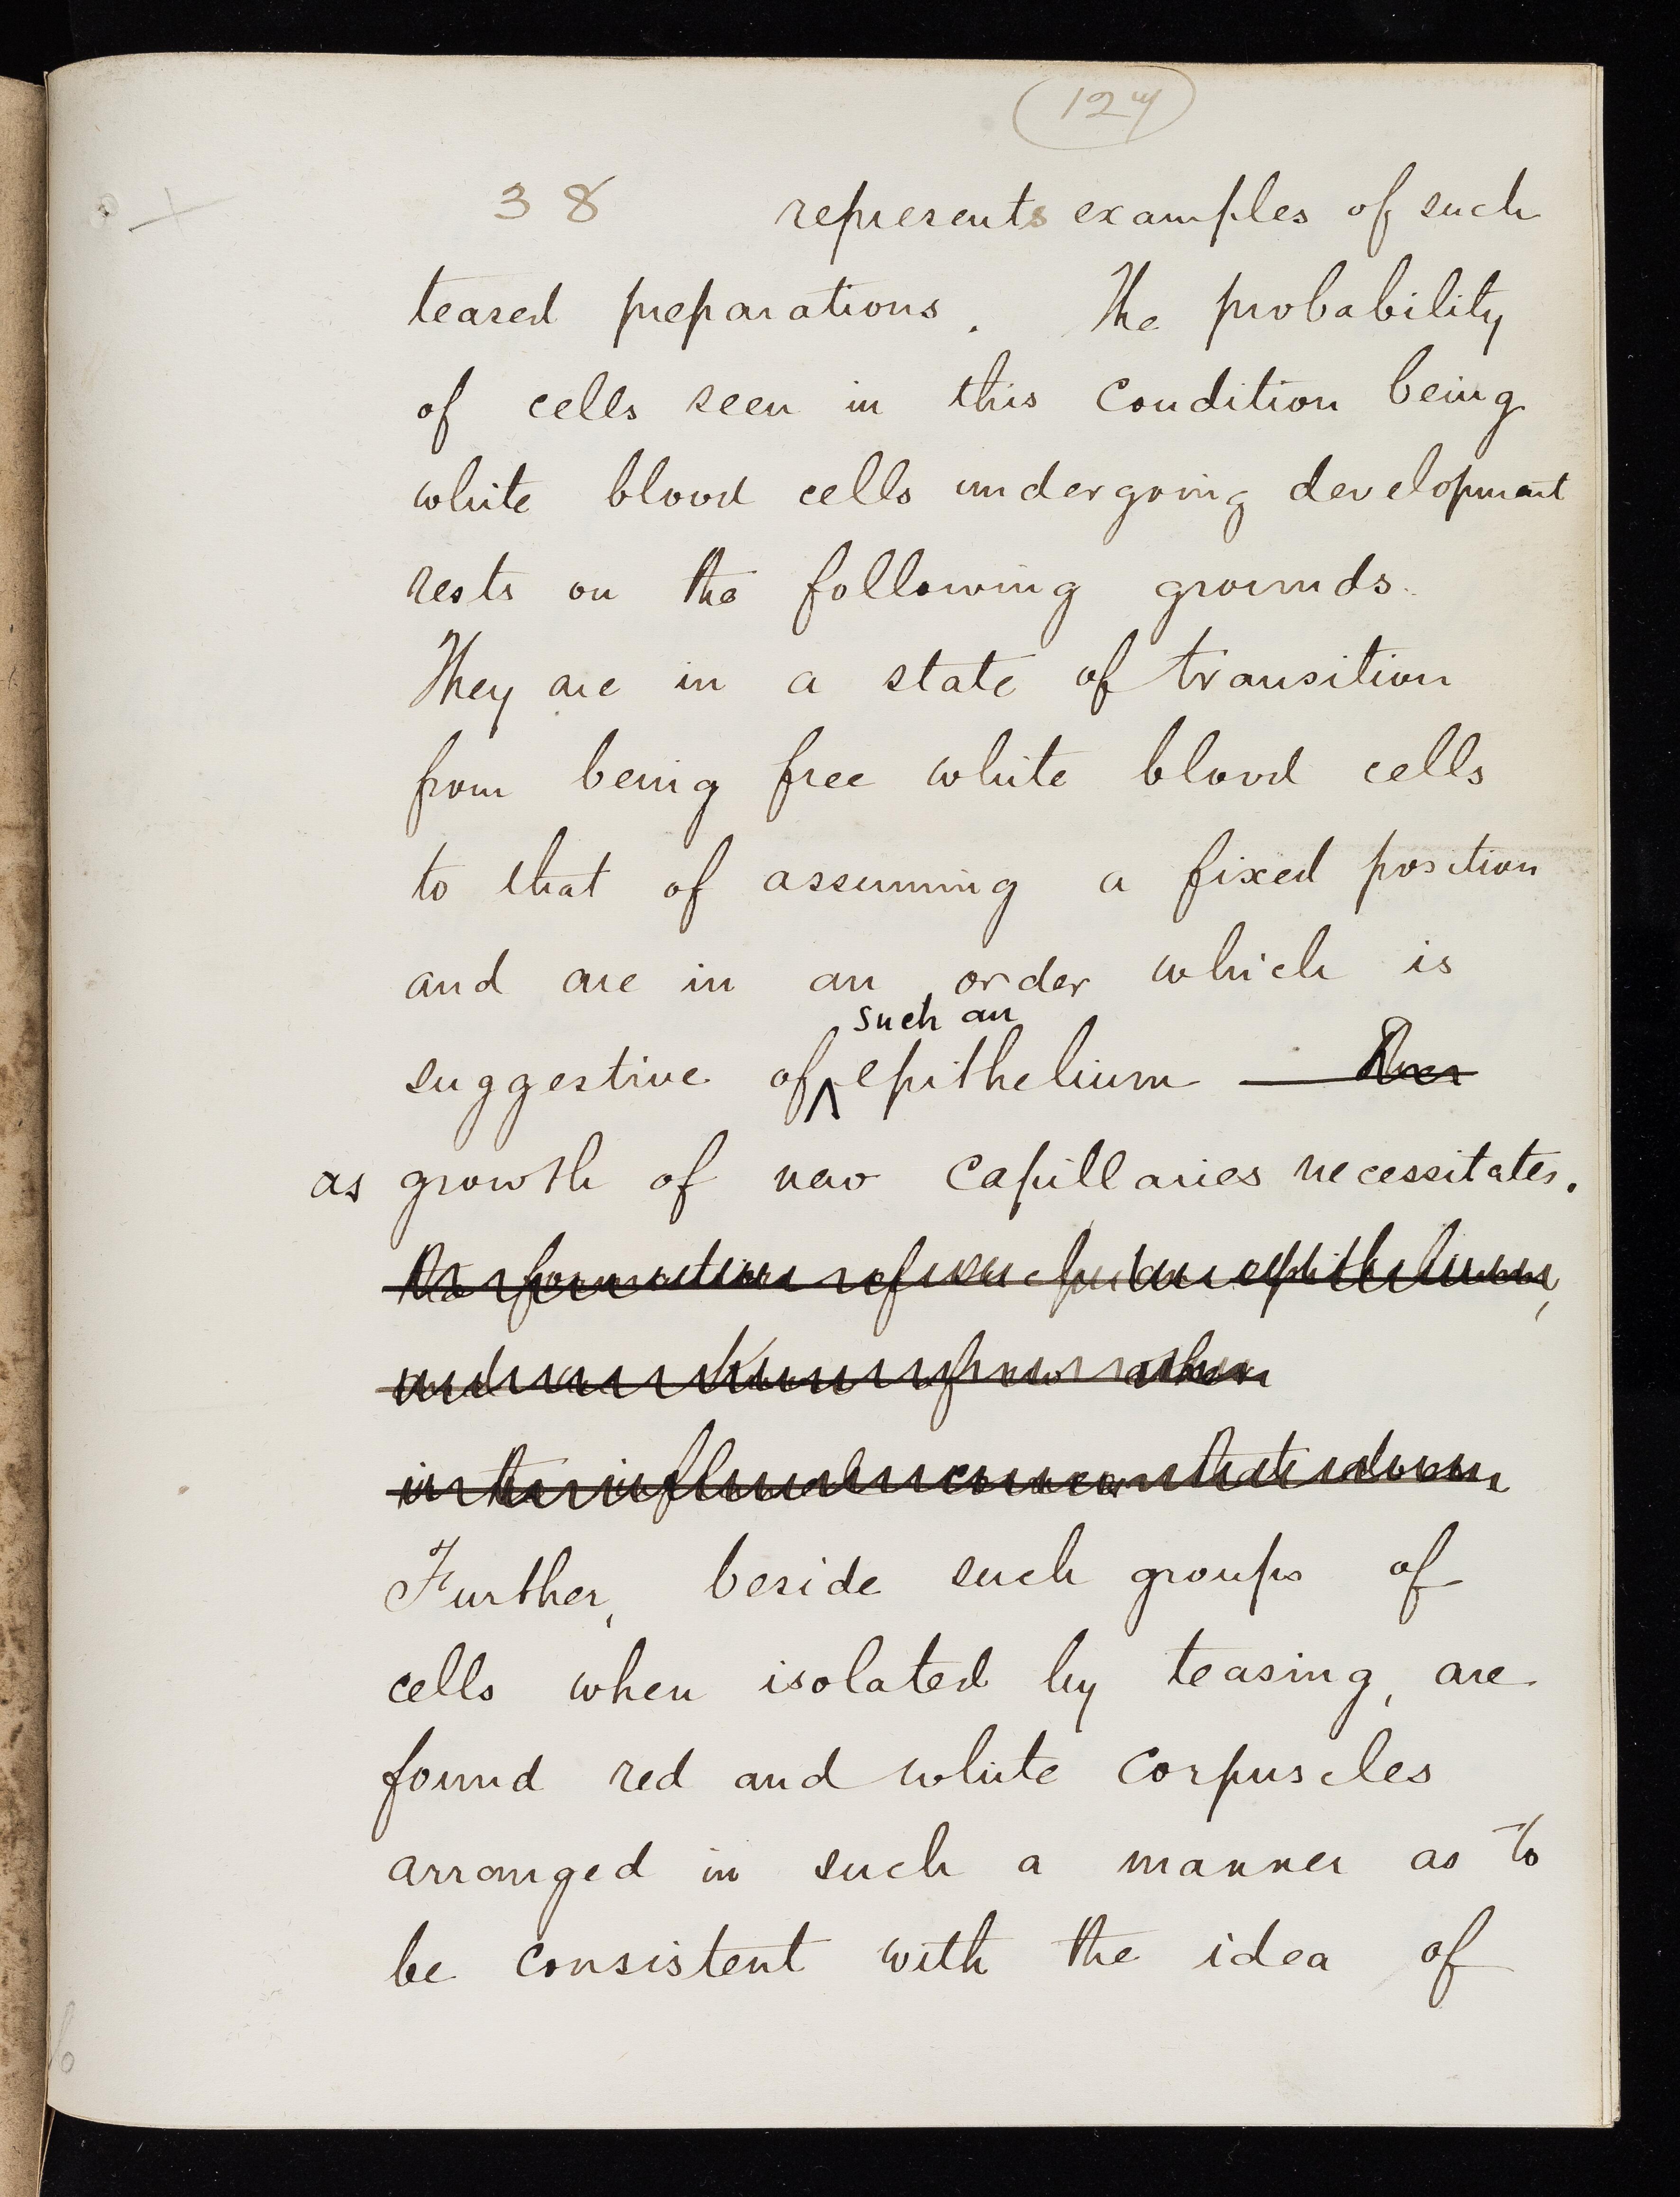 127
38 represents examples of such
teased preparations. The probability
of cells seen in this condition being
white blood cells undergoing development
rests on the following grounds.
They are in a state of transition
from being free white blood cells
to that of assuming a fixed position
and are in an order which is
such an
suggestive of epithelium
as growth of new capillaries necessitates.
Further, beside such groups of
cells when isolated by teasing, are
found red and white corpuscles
arranged in such a manner as to
be consistent with the idea of